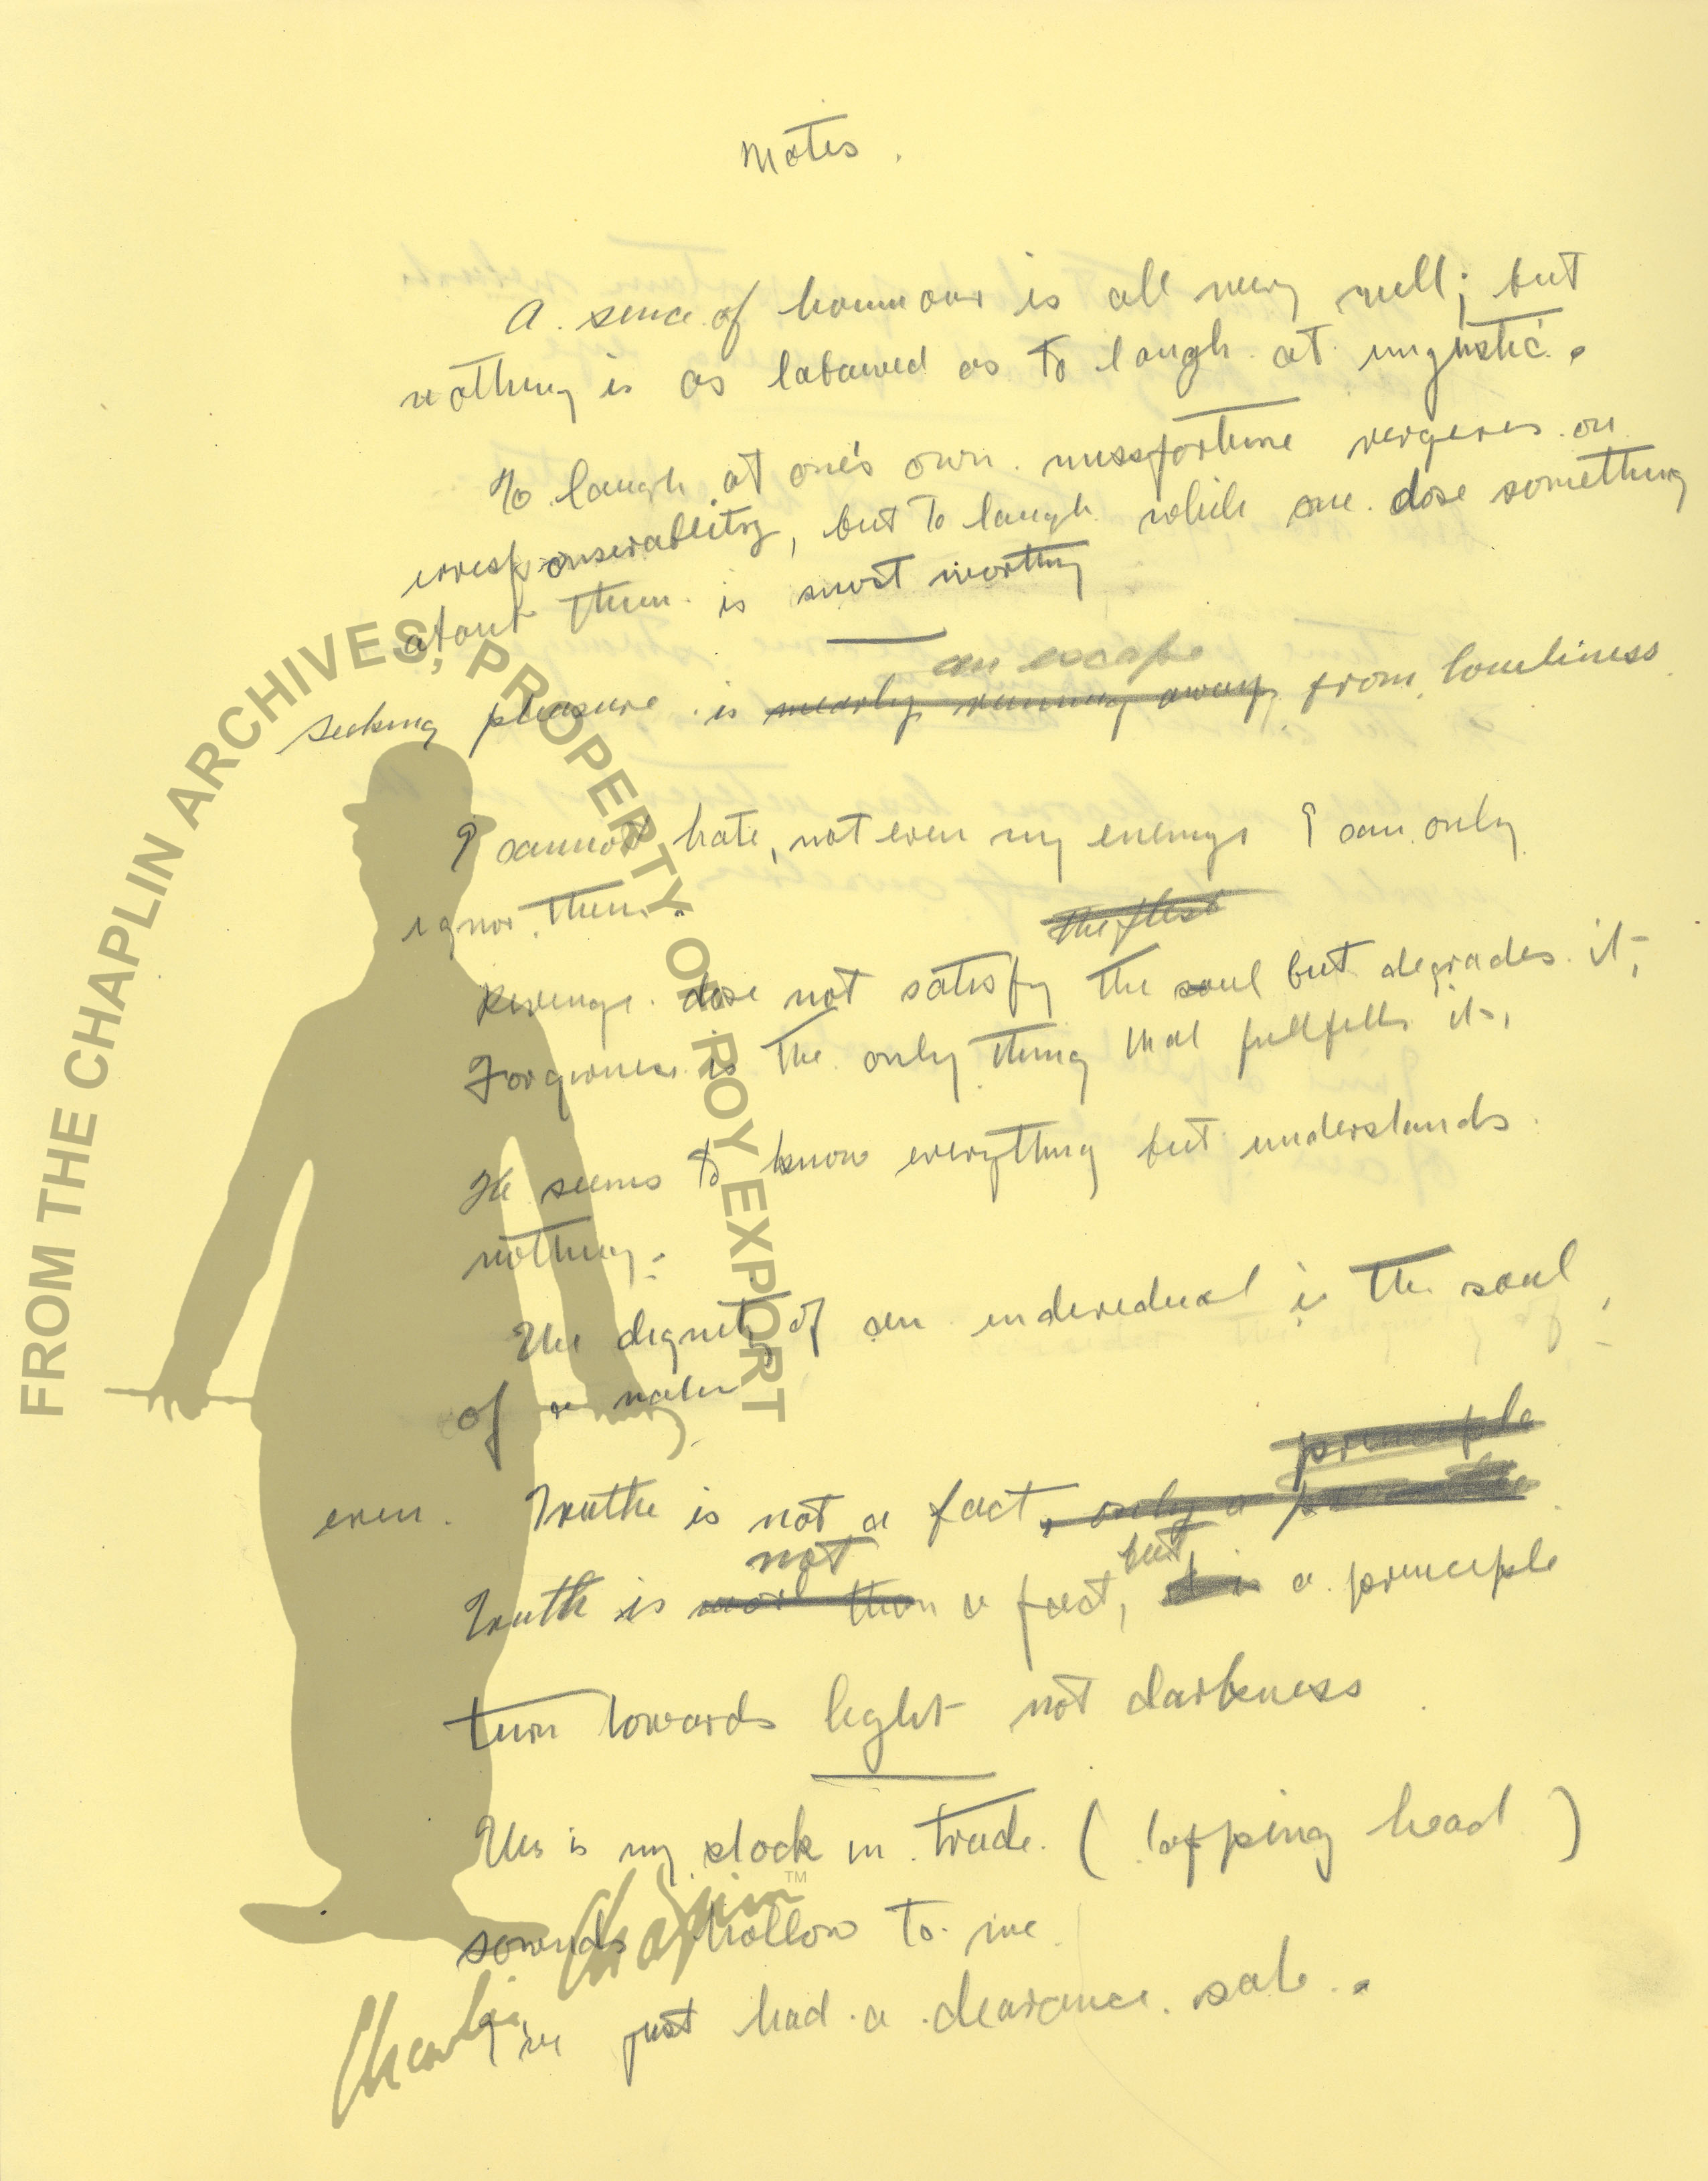 Notes.
A sence of houmour is all very well; but
nothing is as laboured as to laugh at
To laugh at one's own missfortune vergeres on
irresponserability, but to laugh while one dose something
about them is most worthy
an escape
seeking pleasure is nearly running away from loneliness
I cannot hate, not even my enemys I can only
ignor them.
the flesh
Revenge dose not satisfy the soul but degrades it,
Forgivness is the only thing that fullfills it,
He seems to know everything but understands
nothing.
The dignity of an indeviduel is the soul
of a nation
principle
even. Truthe is not a fact, only a
not but
Truth is more than a fact, it is a principle
turn towards light not darkness
This is my stock in trade. (tapping head)
sounds hollow to me.
I've just had a clearance sale.
FROM THE CHAPLIN ARCHIVES, PROPERTY OF ROY EXPORT
Charlie Chaplin™